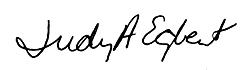 Judy A Egbert